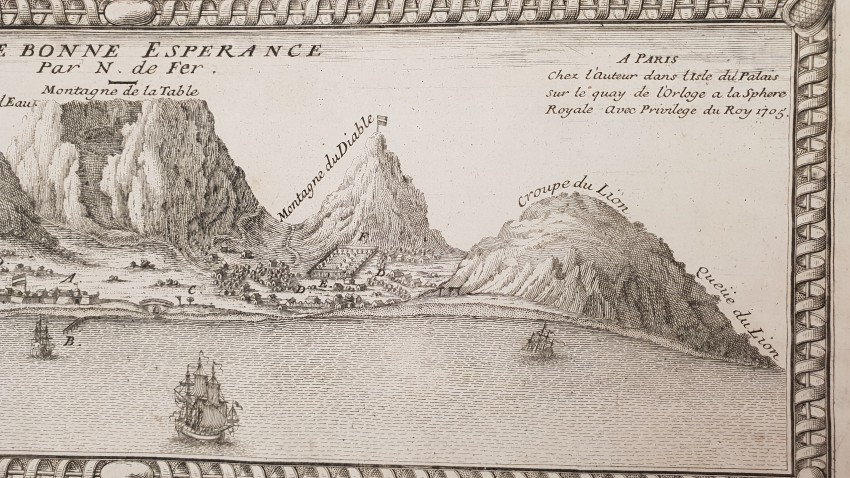 E BONNE ESPERANCE
Par N. de Fer.
A PARIS
Chez l'Auteur dans l'Isle du Palais
sur le quay de l'Orloge a la Sphere
Royale Avec Privilege du Roy 1705.
Montagne de la Table
l'Eau
Montagne du Diable
Croupe du Lion
Queüe du Lion
A
B.
C
D
E
F
D